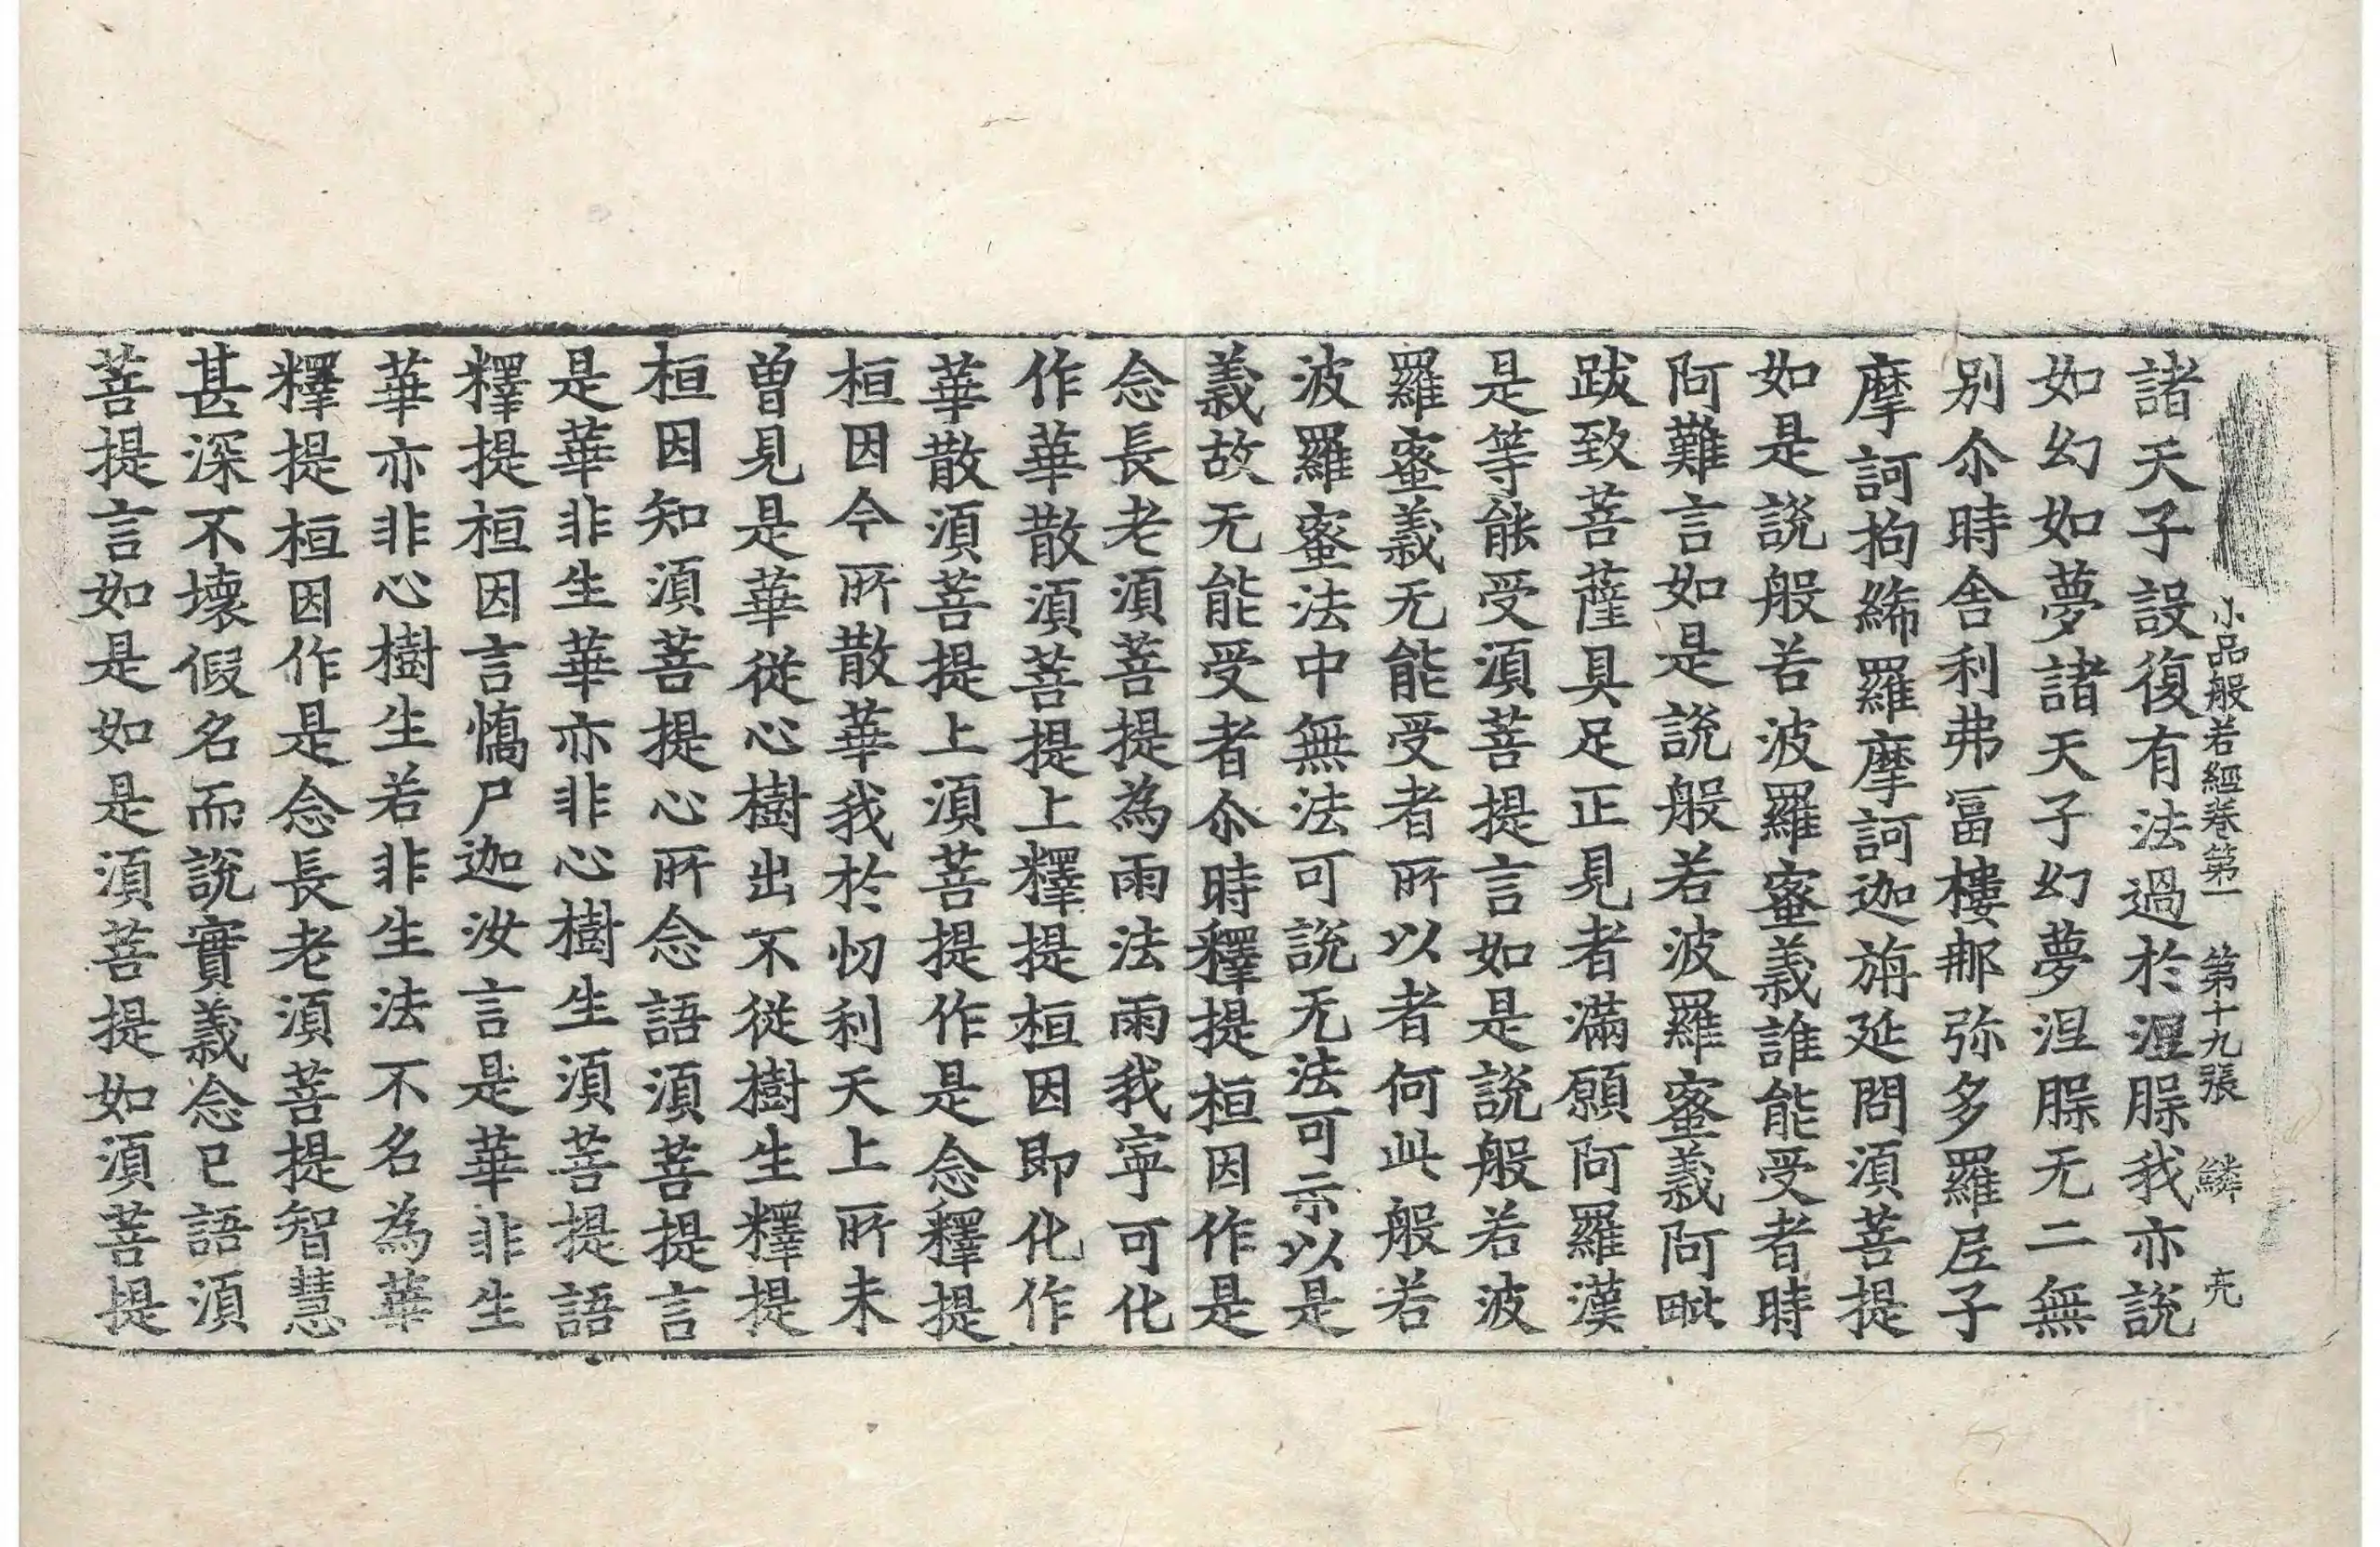 小品般若經卷第一 第十九張 鱗
諸天子設復有法過於涅脲我亦說
如幻如夢諸天子幻夢涅脲无二無
别尒時舍利弗冨樓那弥多羅尼子
摩訶拘絺羅摩訶迦旃延問湏菩提
如是說般若波羅蜜義誰能受者時
阿難言如是說般若波羅蜜義阿毗
跋致菩薩具足正見者滿願阿羅漢
是等能受湏菩提言如是說般若波
羅蜜義无能受者所以者何此般若
波羅蜜法中無法可說无法可示以是
義故无能受者尒時釋提桓因作是
念長老湏菩提為雨法雨我寧可化
作華散湏菩提上釋提桓因即化作
華散湏菩提上湏菩提作是念釋提
桓因今所散華我於忉利天上所未
曽見是華從心樹出不從樹生釋提
桓因知湏菩提心所念語湏菩提言
是華非生華亦非心樹生湏菩提語
釋提桓因言憍尸迦汝言是華非生
華亦非心樹生若非生法不名為華
釋提桓因作是念長老湏菩提智慧
甚深不壞假名而說實義念已語湏
菩提言如是如是湏菩提如湏菩提